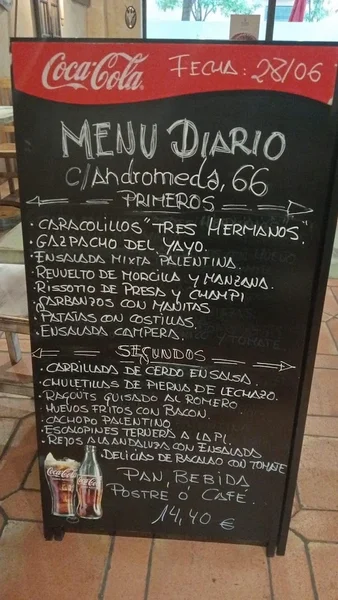 Coca-Cola FECHA: 28/06
MENU DIARIO
C/Andromeda, 66
PRIMEROS
· CARACOLILLOS "TRES HERMANOS".
· GAZPACHO DEL YAYO.
· ENSALADA MIXTA PALENTINA.
· REVUELTO DE MORCILLA Y MANZANA.
· RISSOTTO DE PRESA Y CHAMPI
· GARBANZOS CON MANITAS
· PATATAS CON COSTILLAS.
· ENSALADA CAMPERA.
SEGUNDOS
· CARRILLADA DE CERDO EN SALSA.
· CHULETILLAS DE PIERNA DE LECHAZO.
· RAGOUTS GUISADO AL ROMERO
· HUEVOS FRITOS CON BACON.
· CACHOPO PALENTINO
· ESCALOPINES TERNERA A LA PI.
· REJOS A LA ANDALUZA CON ENSALADA
DELICIAS DE BACALAO CON TOMATE
PAN, BEBIDA
POSTRE Ó CAFÉ.
14,40 €
Coca-Cola